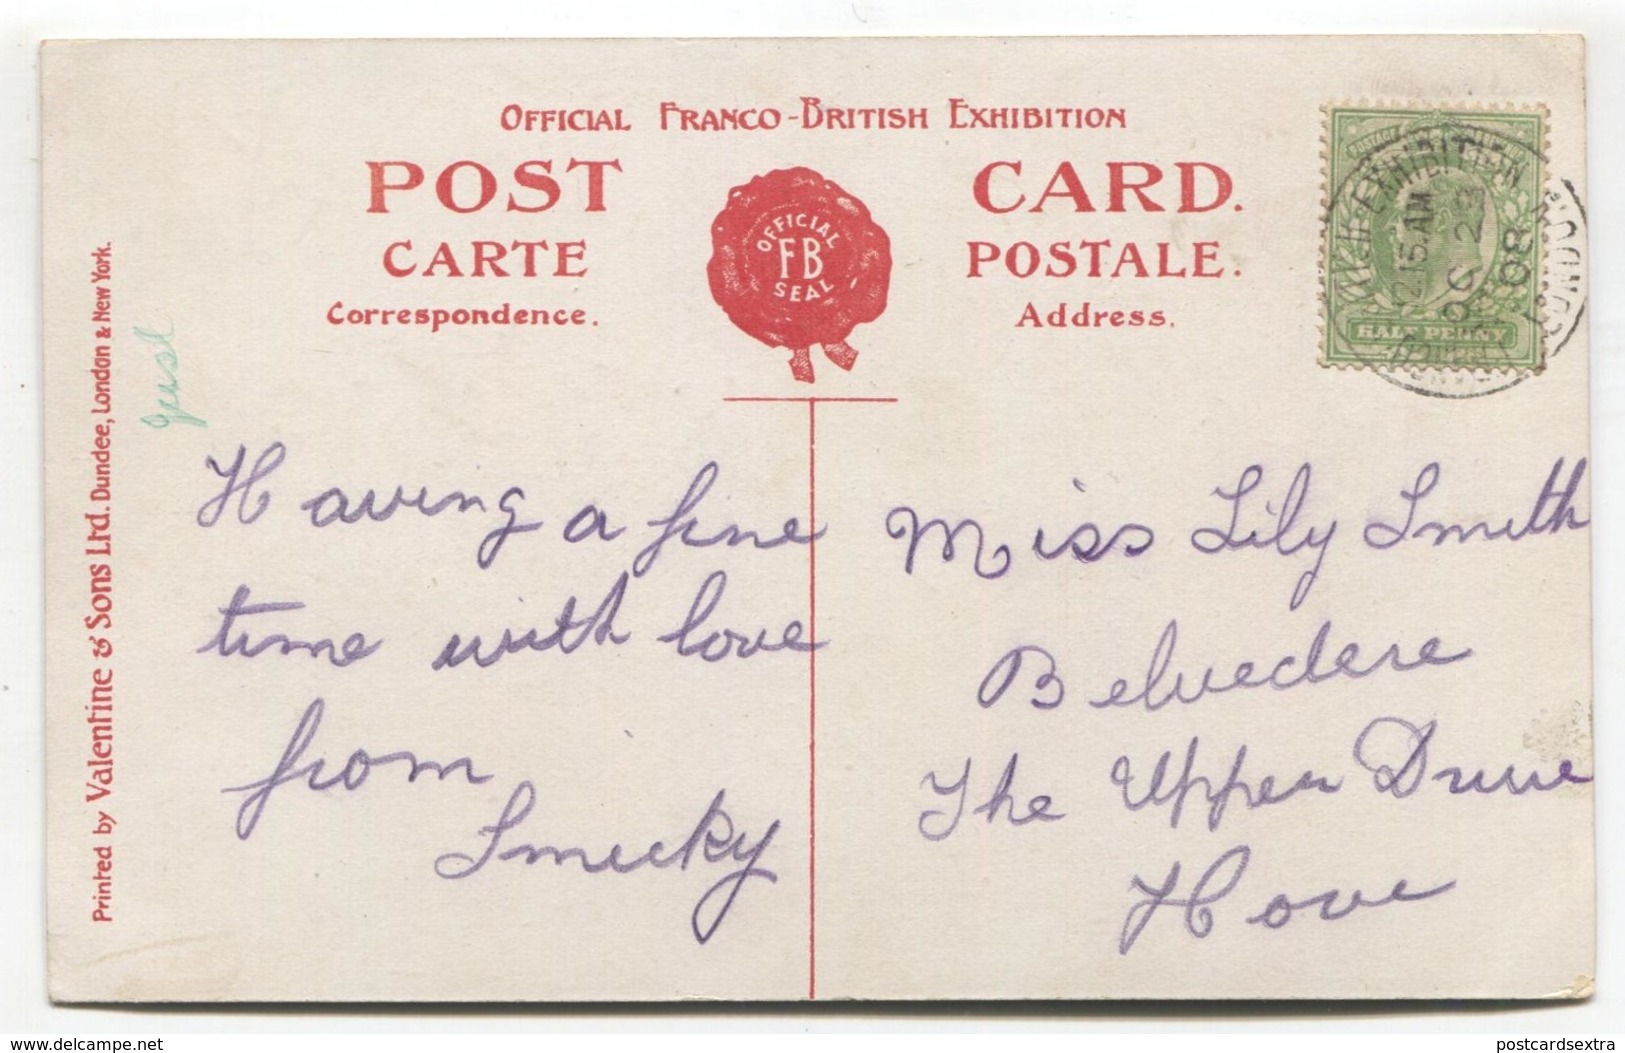 OFFICIAL FRANCO-BRITISH EXHIBITION
POST CARD.
CARTE POSTALE.
Correspondence. Address.
OFFICIAL
FB
SEAL
EXHIBITION
15 AM
OC 23
08
LONDON
HALF PENNY
Printed by Valentine & Sons Ltd. Dundee, London & New York.
Having a fine
time with love
from
Smicky
Miss Lily Smith
Belvedere
The Upper Drive
Hove
www.delcampe.net
postcardsextra